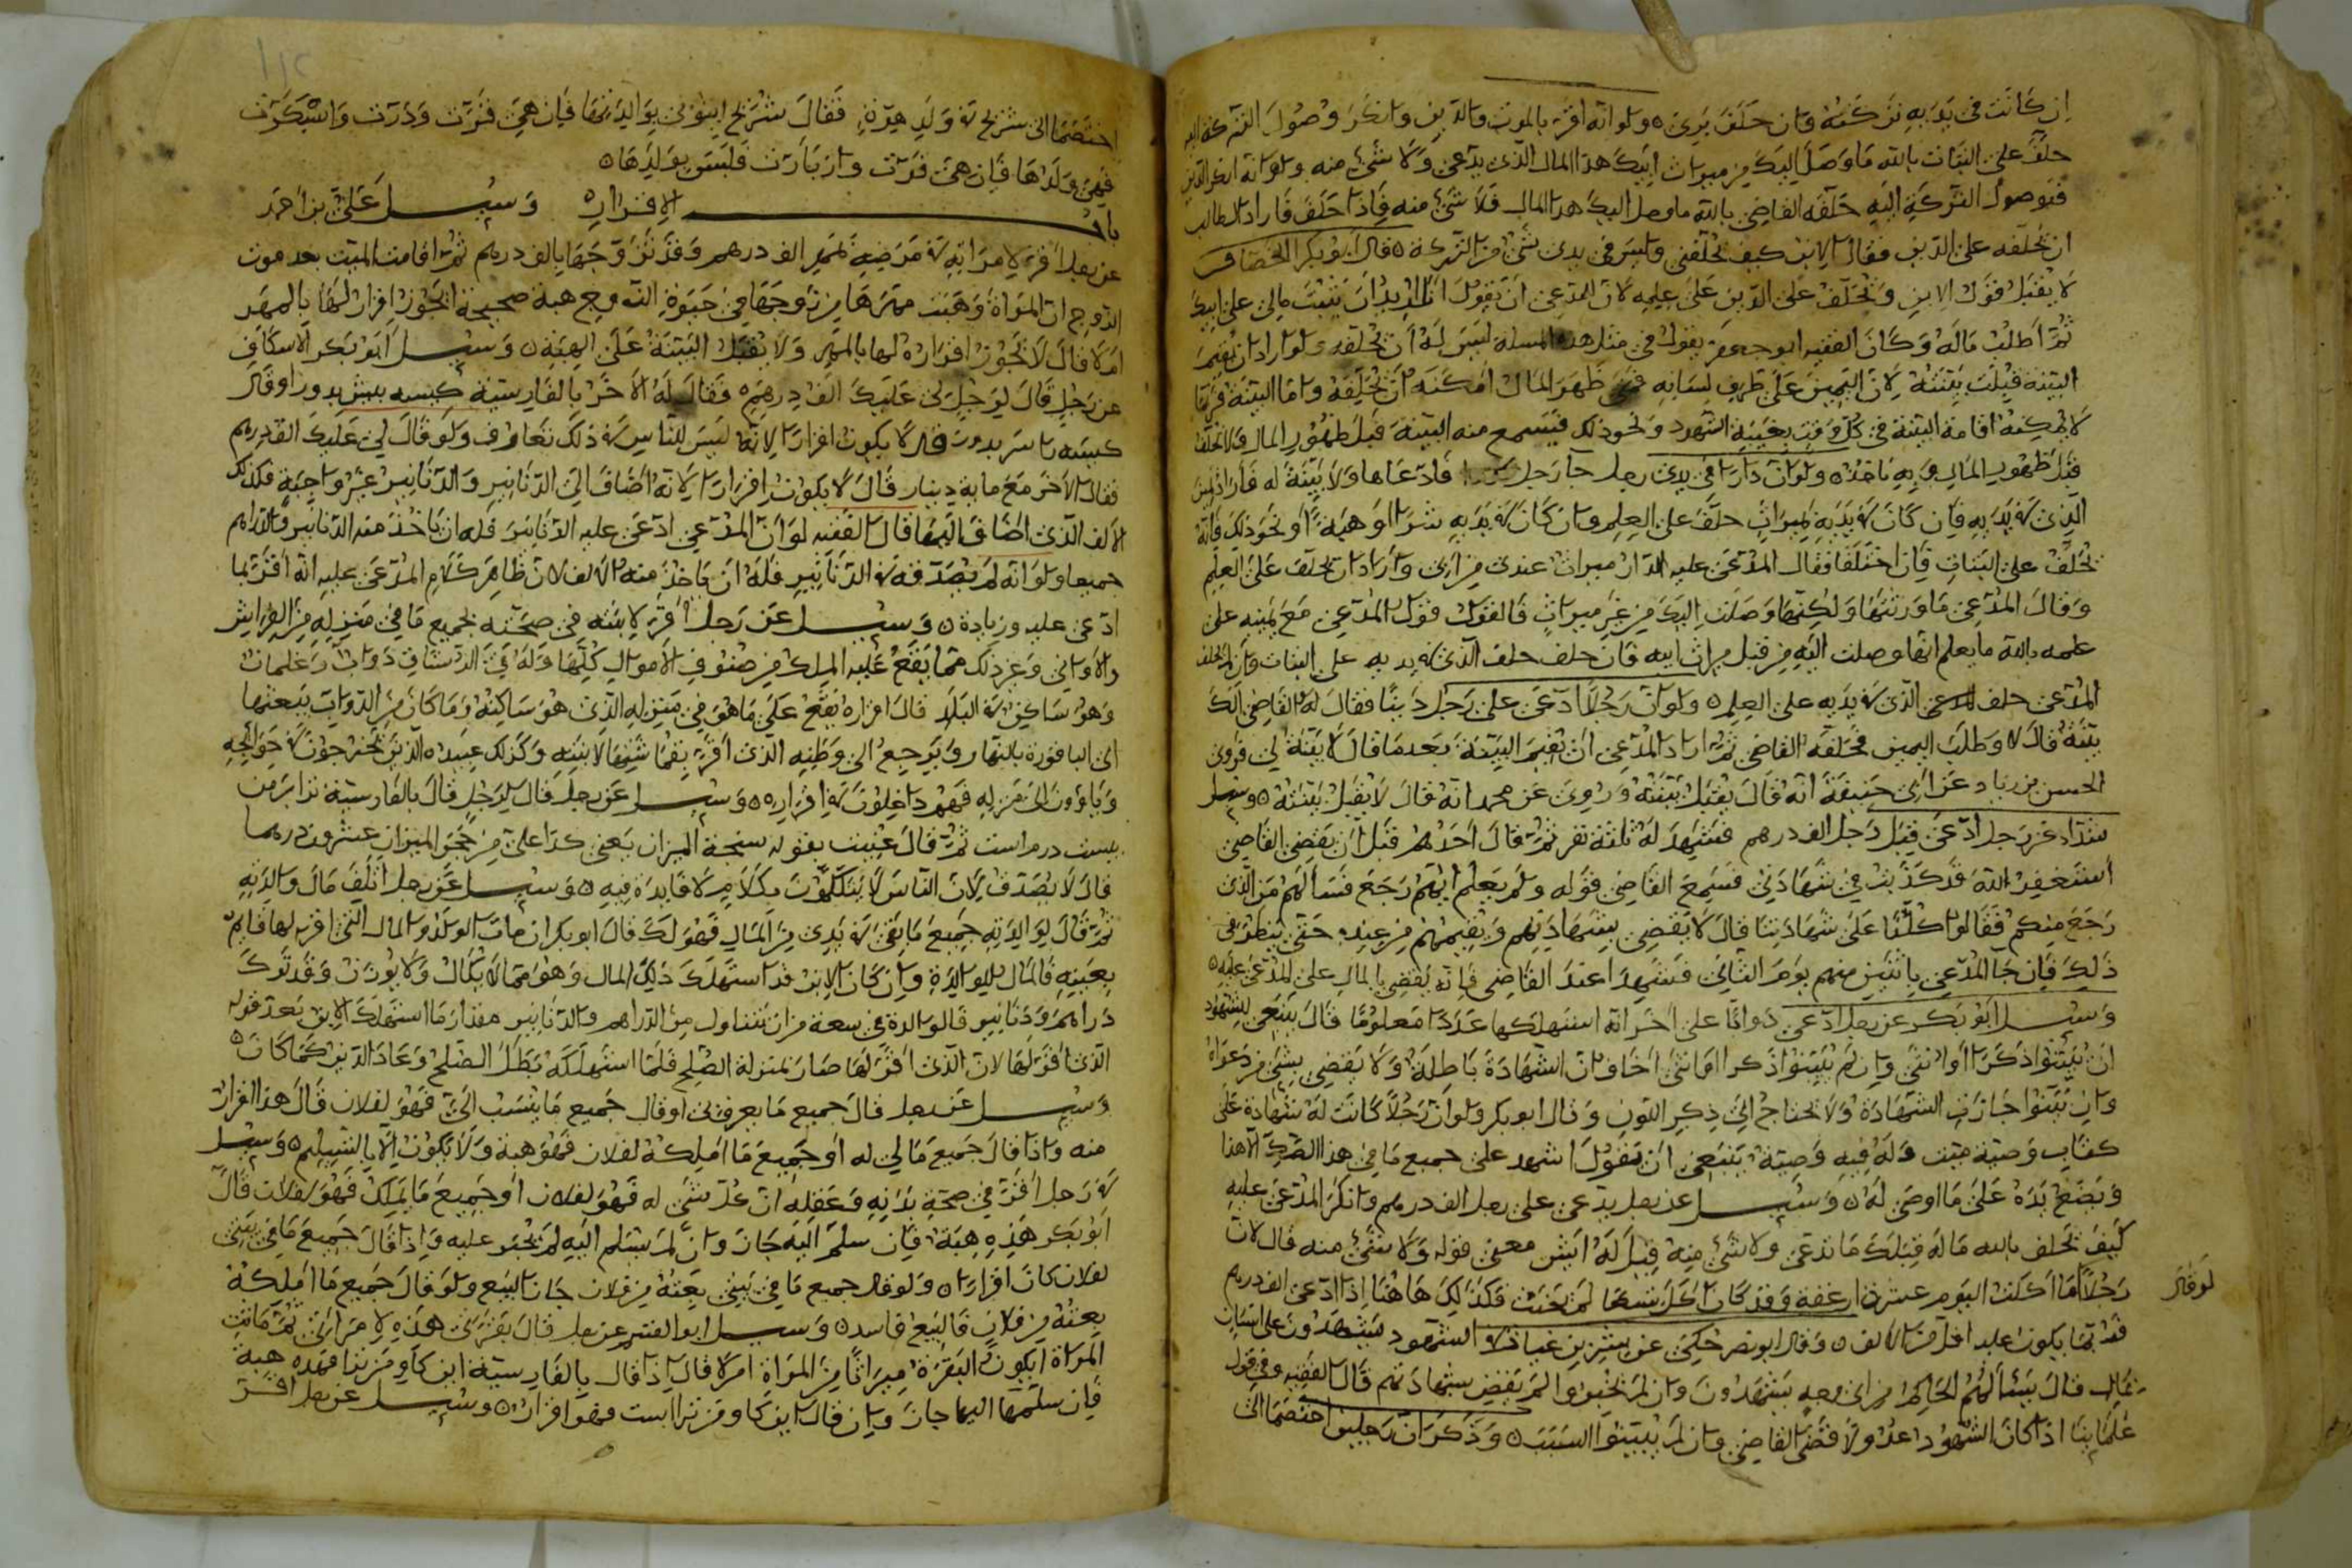 ان كانت في يديه تركته وان حلف برئ ولو انه اقر بالموت والدين وانكر وصول التركة اليه
حلف على البتات بالله ما وصل اليك من ميراث ابيك هذا المال الذي يدعي ولا شئ منه ولو انه انكر الدين
فوصول التركة اليه حلفه القاضي بالله ما وصل اليك هذا المال ولا شئ منه فاذا حلف فاراد الطالب
ان يحلفه على الدين فقال الابن كيف تحلفني وليس في يدي شئ من التركة قال ابو بكر الخصاف
لا يقبل قول الابن ويحلف على الدين على علمه لان المدعي ان يقول انا اريد ان يثبت مالي على ابيك
ثم اطلب ماله وكان الفقيه ابو جعفر يقول في مثل هذه المسئلة ليس له ان يحلفه ولو اراد ان يقيم
البينة قبلت بينته لان اليمين على طرف لسانه فمتى ظهر المال امكنه ان يحلفه واما البينة فربما
لا يمكنه اقامة البينة في كل وقت بغيبة الشهود ونحو ذلك فيسمع منه البينة قبل ظهور المال ولا يحلف
قبل ظهور المال وبه ناخذ ولو ان دارا في يدي رجل جا رجل فادعاها ولا بينة له فاراد يمين
الذي في يديه فان كان في يديه لميراث حلف على العلم وان كان في يديه شرا او هبة او نحو ذلك فانه
يحلف على البتات فان اختلفا فقال المدعى عليه الدار ميراث عندي من ابي واراد ان يحلف على العلم
وقال المدعي ما ورثتها ولكنها وصلت اليك من غير ميراث فالقول قول المدعي مع يمينه على
علمه بالله ما يعلم انها وصلت اليه من قبل ميراث ابيه فان حلف حلف الذي في يديه على البتات وان لم يحلف
المدعي حلف المدعى الذي في يديه على العلم ولو ان رجلا ادعى على رجل دينا فقال له القاضي الك
بينة قال لا وطلب اليمين فحلفه القاضي ثم اراد المدعي ان يقيم البينة بعدما قال لا بينة لي فروى
الحسن بن زياد عن ابي حنيفة انه قال يقبل بينته وروي عن محمد انه قال لا يقبل بينته وسئل
شداد عن رجل ادعى قبل رجل الف درهم فشهد له ثلثة نفر ثم قال احدهم قبل ان يقضي القاضي
استغفر الله قد كذبت في شهادتي فسمع القاضي قوله ولم يعلم ايهم رجع فسالهم من الذي
رجع منكم فقالوا كلنا على شهادتنا قال لا يقضي بشهادتهم ويقيمهم من عنده حتى ينظر في
ذلك فان جا المدعي باثنين منهم يوم الثاني فشهدا عند القاضي فانه يقضي بالمال على المدعى عليه
وسئل ابو بكر عن رجل ادعى دوابا على اخر انه استهلكها عددا معلوما قال ينبغي للشهود
ان يبينوا ذكرا او انثى وان لم يبينوا ذكرا اما انثى اخاف ان الشهادة باطلة ولا يقضي بشئ من دعواه
وان بينوا جازت الشهادة ولا يحتاج الى ذكر اللون وقال ابو بكر ولو ان رجلا كانت له شهادة على
كتاب وصية ميت وله فيه وصية ينبغي ان يقول اشهد على جميع ما في هذا الصك الا هذا
ويضع يده على ما اوصى له وسئل عن رجل يدعي على رجل الف درهم وانكر المدعى عليه
كيف يحلف بالله ماله قبلك ما تدعي ولا شئ منه قيل له ايش معنى قوله ولا شئ منه قال لان
رجلا ما اكلت اليوم عشرة ارغفة وقد كان اكل تسعا لم يحنث فكذلك هاهنا اذا ادعى الف درهم
لو قال
فربما يكون عليه اقل من الالف وقال ابو نصر حكي عن بشر بن غياث الشهود يشهدون على انسان
بمال قال يسالهم الحاكم من اي وجه يشهدون وان لم يخبروا لم يقض بشهادتهم قال الفقيه وفي قول
علمائنا اذا كان الشهود عدولا قضى القاضي وان لم يبينوا السبب وذكر ان رجلين اختصما الى
١١٢
اختصما الى شريح في ولد هرة فقال شريح ايتوني بوالدتها فان هي قرت ودرت واسبكرت
فهي ولدها فان هي فرت وازبارت فليس بولدها
باب الاقرار وسئل علي بن احمد
عن رجل اقر لامراته في مرضه بمهر الف درهم وقد تزوجها بالف درهم ثم اقامت البينة بعد موت
الزوج ان المراة وهبت مهرها من زوجها في حيوة الزوج هبة صحيحة ايجوز اقراره لها بالمهر
ام لا قال لا يجوز اقراره لها بالمهر ولا يقبل البينة على الهبة وسئل ابو بكر الاسكاف
عن رجل قال لرجل لي عليك الف درهم فقال له الاخر بالفارسية كيسه بيش بدوز او قال
كيسه باسر بدوز قال لا يكون اقرارا لانه ليس للناس في ذلك تعارف ولو قال لي عليك الف درهم
فقال الاخر مع ماية دينار قال لا يكون اقرارا لانه اضاف الى الدنانير والدنانير غير واجبة فكذلك
الالف الذي اضاف اليها قال الفقيه لو ان المدعي ادعى عليه الدنانير فله ان ياخذ منه الدنانير والدراهم
جميعا ولو انه لم يصدقه في الدنانير فله ان ياخذ منه الالف لان ظاهر كلام المدعى عليه انه اقر بما
ادعى عليه وزيادة وسئل عن رجل اقر لابنته في صحته بجميع ما في منزله من الفرايش
والاواني وغير ذلك مما يقع عليه الملك من صنوف الاموال كلها وله في الرستاق دواب وغلمان
وهو ساكن في البلد قال اقراره يقع على ما هو في منزله الذي هو ساكنه وما كان من الدواب يبعثها
الى الباقورة بالنهار ويرجع الى وطنه الذي اقر بقماشها لابنته وكذلك عبيده الذين يخرجون في حوايجه
وياوون الى منزله فهم داخلون في اقراره وسئل عن رجل قال لرجل قال بالفارسية ترا بر من
بيست درم است ثم قال عنيت بقوله سنجة الميزان يعني كذا علي من نحو الميزان عشرون درهما
قال لا يصدق لان الناس لا يتكلمون بكلام لا فايدة فيه وسئل عن رجل اتلف مال والدته
ثم قال لوالدته جميع ما بقى في يدي من المال فهو لك قال ابو بكر ان مات الولد والمال الذي اقر به لها قايم
بعينه فالمال للوالدة وان كان الابن قد استهلك ذلك المال وهو مما لا يكال ولا يوزن وقد ترك
دراهم ودنانير فالوالدة في سعة من ان تتناول من الدراهم والدنانير مقدار ما استهلك الابن بعد قوله
الذي اقر لها لان الذي اقر لها صار بمنزلة الصلح فلما استهلكه بطل الصلح وعاد الدين كما كان
وسئل عن رجل قال جميع ما يعرف لي او قال جميع ما ينسب الي فهو لفلان قال هذا اقرار
منه واذا قال جميع مالي له او جميع ما املكه لفلان فهو هبة ولا يكون الا بالتسليم وسئل
في رجل اقر في صحة بدنه وعقله ان كل شئ له فهو لفلان او جميع ما يملك فهو لفلان قال
ابو بكر هذه هبة فان سلم اليه جاز وان لم يسلم اليه لم يجبر عليه واذا قال جميع ما في بيتي
لفلان كان اقرارا ولو قال جميع ما في بيتي بعته من فلان جاز البيع ولو قال جميع ما املكه
بعته من فلان فالبيع فاسد وسئل ابو القسم عن رجل قال بقرتي هذه لامراتي ثم ماتت
المراة ايكون البقرة ميراثا من المراة ام لا قال اذا قال بالفارسية اين كاو من ترا فهذه هبة
فان سلمها اليها جاز وان قال اين كاو من ترا است فهو اقرار وسئل عن رجل اقر